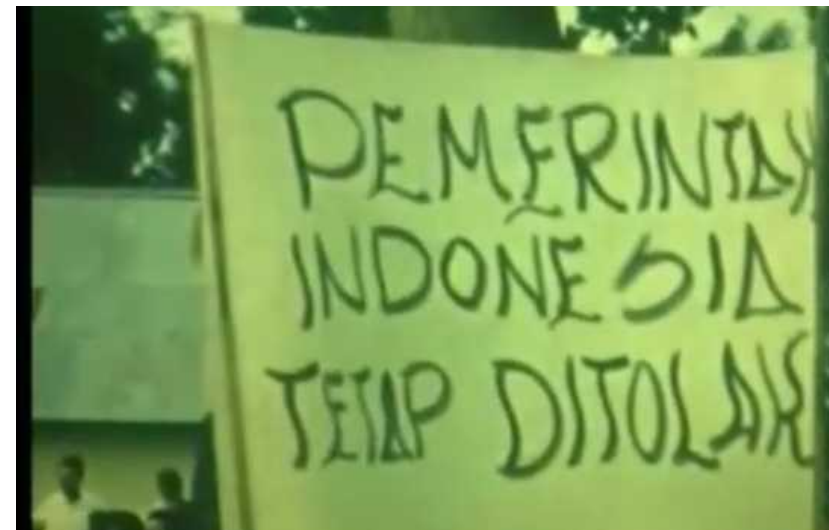 PEMERINTAH
INDONESIA
TETAP DITOLAK